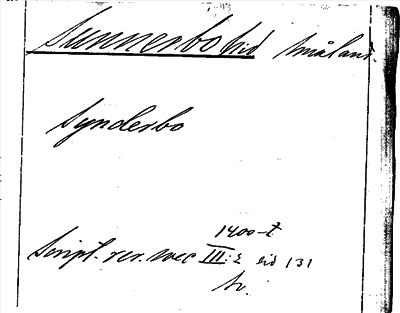 Sunnerbo hd Småland.
Synderbo
1400-t
Script. rer. svec III:2 sid 131